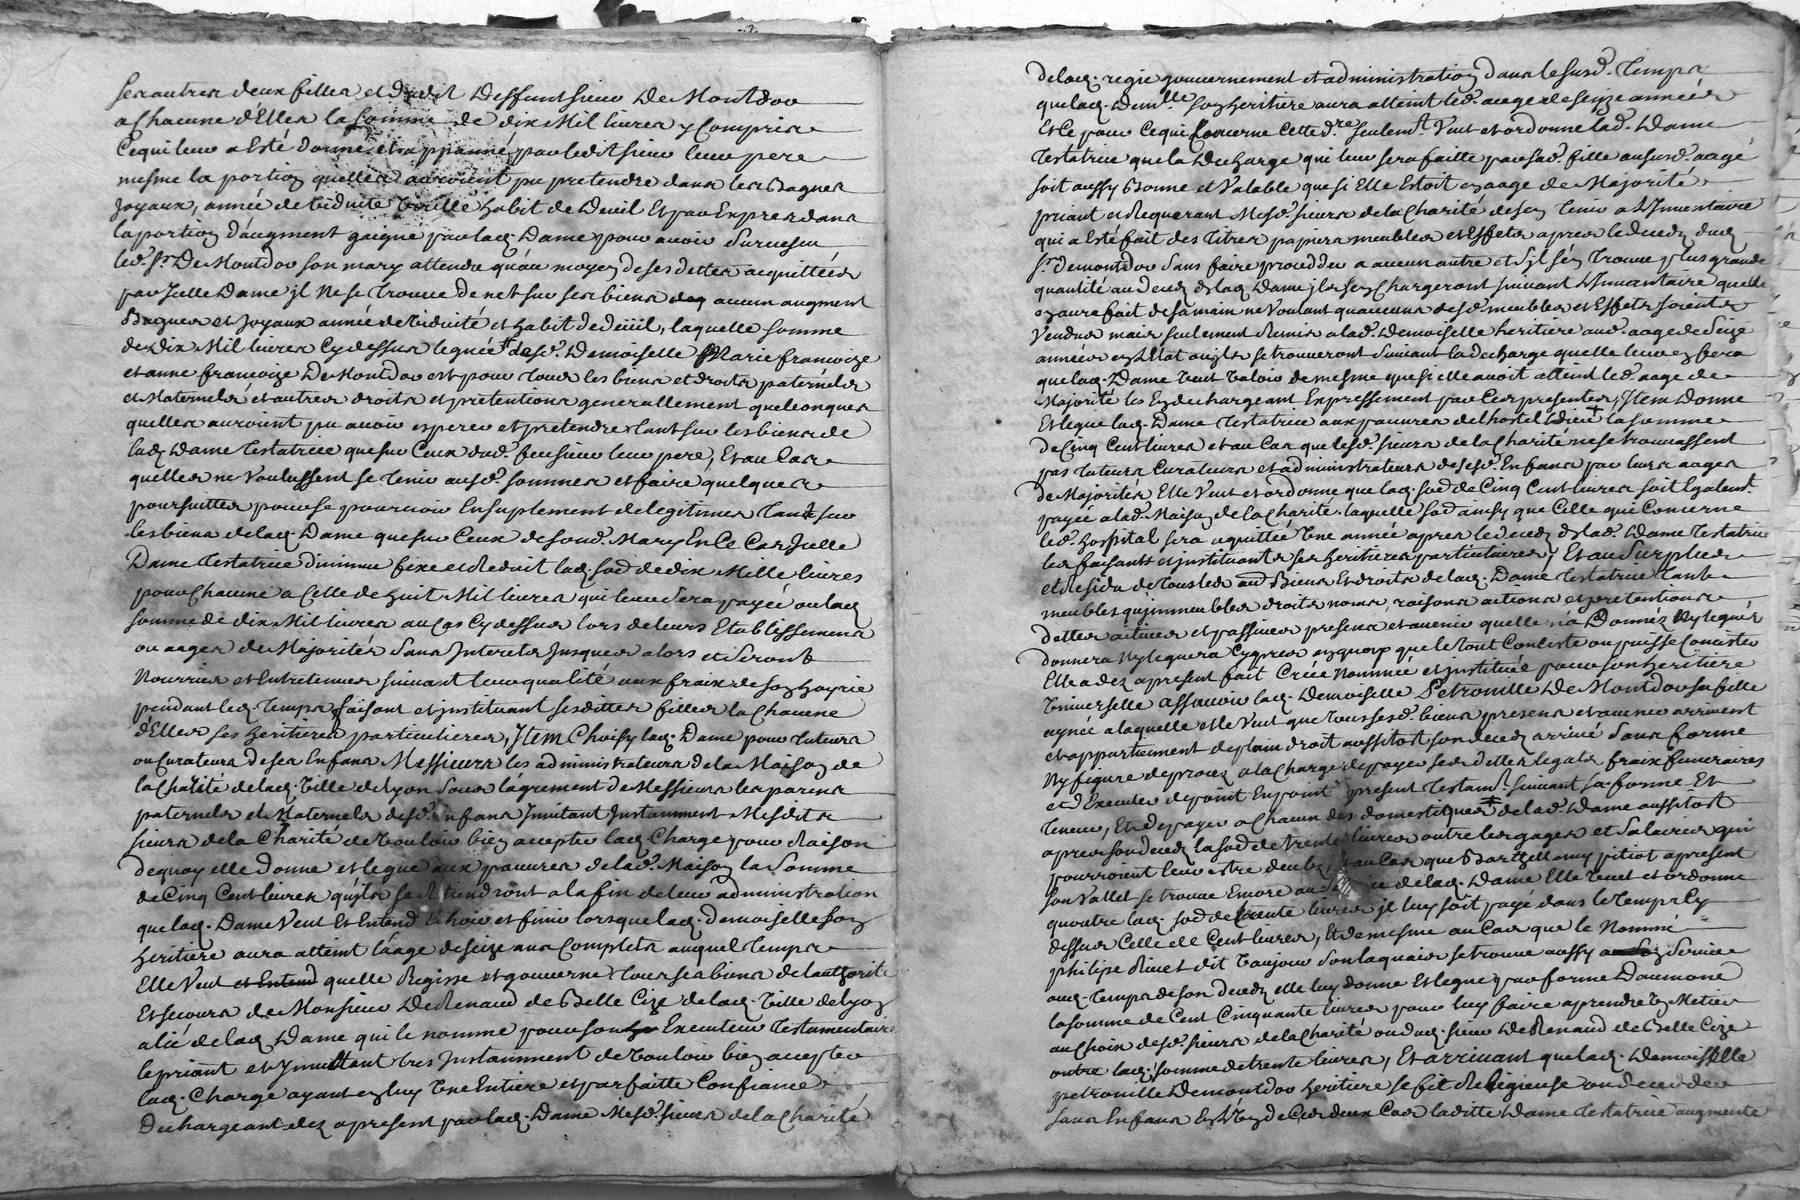 ses autres deux filles et dudit Deffunt sieur De Montdor
a Chacune d'Elles la somme de dix Mil livres y Compris
Ce qui leur a Esté donné et par ledit sieur leur pere
mesme la portion quelles auroient pu pretendre dans les Bagues
Joyaux, année de viduité voille habit de Deuil Et par Exprez dans
la portion d'augment gaigné par lad. Dame pour avoir survescu
led. sr. De Montdor son mary attendre qu'au moyen de ses dettes acquittées
par Jcelle Dame jl ne se trouve de net sur ses biens aucun augment
Bagues et Joyaux année de viduité et habit de deüil, laquelle somme
de Dix Mil livres Cy dessus leguée desd. Demoiselles Marie francoize
et anne francoize De Montdor est pour tous les biens et droits paternels
et Maternels et autres droits et pretentions generallement quelconques
quelles auroient pu avoir esperer et pretendre tant sur les biens de
lad. Dame testatrice que sur Ceux dud. feu sieur leur pere, Et au Cas
quelles ne Voulussent se tenir ausd. sommes et faire quelques
poursuittes pour se pourvoir En suplement de legitimes tant sur
les biens de lad. Dame que sur Ceux de sond. Mary En Ce Cas Jcelle
Dame testatrice diminue fixe et Reduit lad. so.e de dix Mille livres
pour Chacune a Celle de huit Mil livres qui leur sera payée ou lad.
somme de dix Mil livres au Cas Cy dessus lors de leurs Etablissemens
ou aages de Majorités sans Interets Jusques alors et seront
Nourries et Entretenues suivant leur qualité aux fraix de son hoyrie
pendant led. temps faisant et jnstituant sesdittes filles la Chacune
d'Elles ses heritieres particulieres, Jtem Choisy lad. Dame pour tuteurs
ou Curateurs de ses Enfans Messieurs les administrateurs de la Maison de
la Charité de lad. Ville de Lyon sous lagrement de Messieurs les parens
paternels et Maternels desd. Enfans Jnvitant Jnstamment Mesdits
sieurs de la Charité de vouloir bien accepter lad. Charge pour Raison
dequoy elle donne et legue aux pauvres de lad. Maison la somme
de Cinq Cent livres qu'jls se Retiendront a la fin de leur administration
que lad. Dame Veut Et Entend Echoir et finir lorsque lad. demoiselle son
heritiere aura atteint laage de seize ans Complets auquel temps
Elle Veut et Entend quelle Regisse et gouverne tous ses biens de lauthorité
Et secours de Monsieur De Renaud de Belle Cize de lad. Ville de Lyon
alié de lad. Dame qui le nomme pour son Executeur testamentaire
le priant et Jnvittant tres Jnstamment de vouloir bien accepter
lad. Charge ayant en luy Une Entiere et parfaitte Confiance
Dechargeant dez a present par lad. Dame Mesd. sieurs de la Charité
de lad. regie gouvernement et administration dans le susd. temps
que lad. Demlle son heritiere aura atteint led. aage de seize années
Et Ce pour Ce qui Concerne Cette dre. seulemt Veut et ordonne lad. Dame
testatrice que la Decharge qui leur sera faitte par sad. fille au susd. aage
soit aussy Bonne et Valable que si Elle Estoit en aage de Majorité
priant et Requerant Mesd. sieurs de la Charité de sen tenir a L'Jnventaire
qui a Esté fait des titres papiers meubles et Effets apres le decez dud.
sr. demontdor sans faire proceder a aucun autre et s'jl sen trouve plus grande
quantité au decez de lad. Dame jls sen Chargeront suivant L'Jnvantaire quelle
en aura fait de sa main ne Voulant quaucuns desd. meubles et Effets soient
Vendus mais seulement Remis a lad. Demoiselle heritiere aud. aage de seize
années en L'Etat auquel jls se trouveront suivant la decharge quelle leur en fera
que lad. Dame Veut Valoir de mesme que si elle avoit atteint led. aage de
Majorité les En dechargeant Expressement par Ces presentes, Jtem Donne
Et legue lad. Dame testatrice aux pauvres del hostel Dieu la somme
de Cinq Cent livres et au Cas que lesd. sieurs de la Charité ne se trouvassent
pas tuteurs Curateurs et administrateurs de sesd. Enfans par leurs aages
de Majorités Elle Veut et ordonne que lad. so.e de Cinq Cent livres soit Egalemt.
payée a lad. Maison de la Charité laquelle so.e ainsy que Celle qui Concerne
led. hospital sera aquittée Une année apres le decez de lad. Dame testatrice
les faisants et jnstituants ses heritiers particuliers, Et au surplus
et Residu de tous les Biens Et droits de lad. Dame testatrice tant
meubles qujmmeubles droits noms, raisons actions et pretentions
dettes actives et passives presens et avenir quelle n'a Donnéz Ny leguéz
donnera Ny leguera Cy apres en quoy que le tout Consiste ou puisse Consister
Elle a dez a present fait Créée Nommée et jnstituée pour son heritiere
Universelle assavoir lad. Demoiselle Petronille De Montdor sa fille
aynée a laquelle elle Veut que tous sesd. biens presens et avenir arrivent
et appartiennent de plain droit aussitost son decez arrivé sans forme
Ny figure de procez a la Charge de payer ses dettes legats fraix funeraires
et d'Executer de point En point present testamt. suivant sa forme Et
teneur, Et de payer a Chacun des domestiques de lad. Dame aussitost
apres son decez la so.e de trente livres outre les gages et salaires qui
pourroient leur estre deubs et au Cas que Barthellemy pitiot a present
son Vallet se trouve Encore au de lad. Dame Elle Veut et ordonne
quoutre lad. so.e de trente livres jl luy soit payé dans le temps Cy
dessus Celle de Cent livres, Et de mesme au Cas que le Nommé
philipe Rivet dit Vaujour son laquais se trouve aussy service
aud. temps de son decez elle luy donne et legue par forme Daumone
la somme de Cent Cinquante livres pour luy faire aprendre Un Metier
au Choix desd. sieurs de la Charité ou dud. sieur De Renaud de Belle Cize
outre lad. somme de trente livres, Et arrivant que lad. Demoiselle
petronille Demontdor heritiere se fit Religieuse ou decedee
sans Enfans En L'Un de Ces deux Cas laditte Dame testatrice augmente